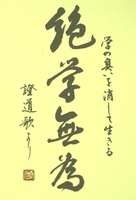 学の臭いを消して生きる
絶学無為
證道歌より